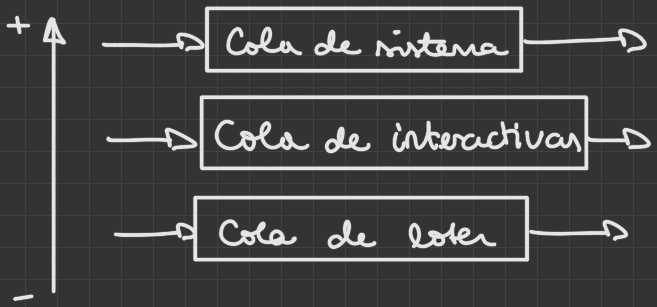 +
Cola de sistema
Cola de interactivas
Cola de lotes
-